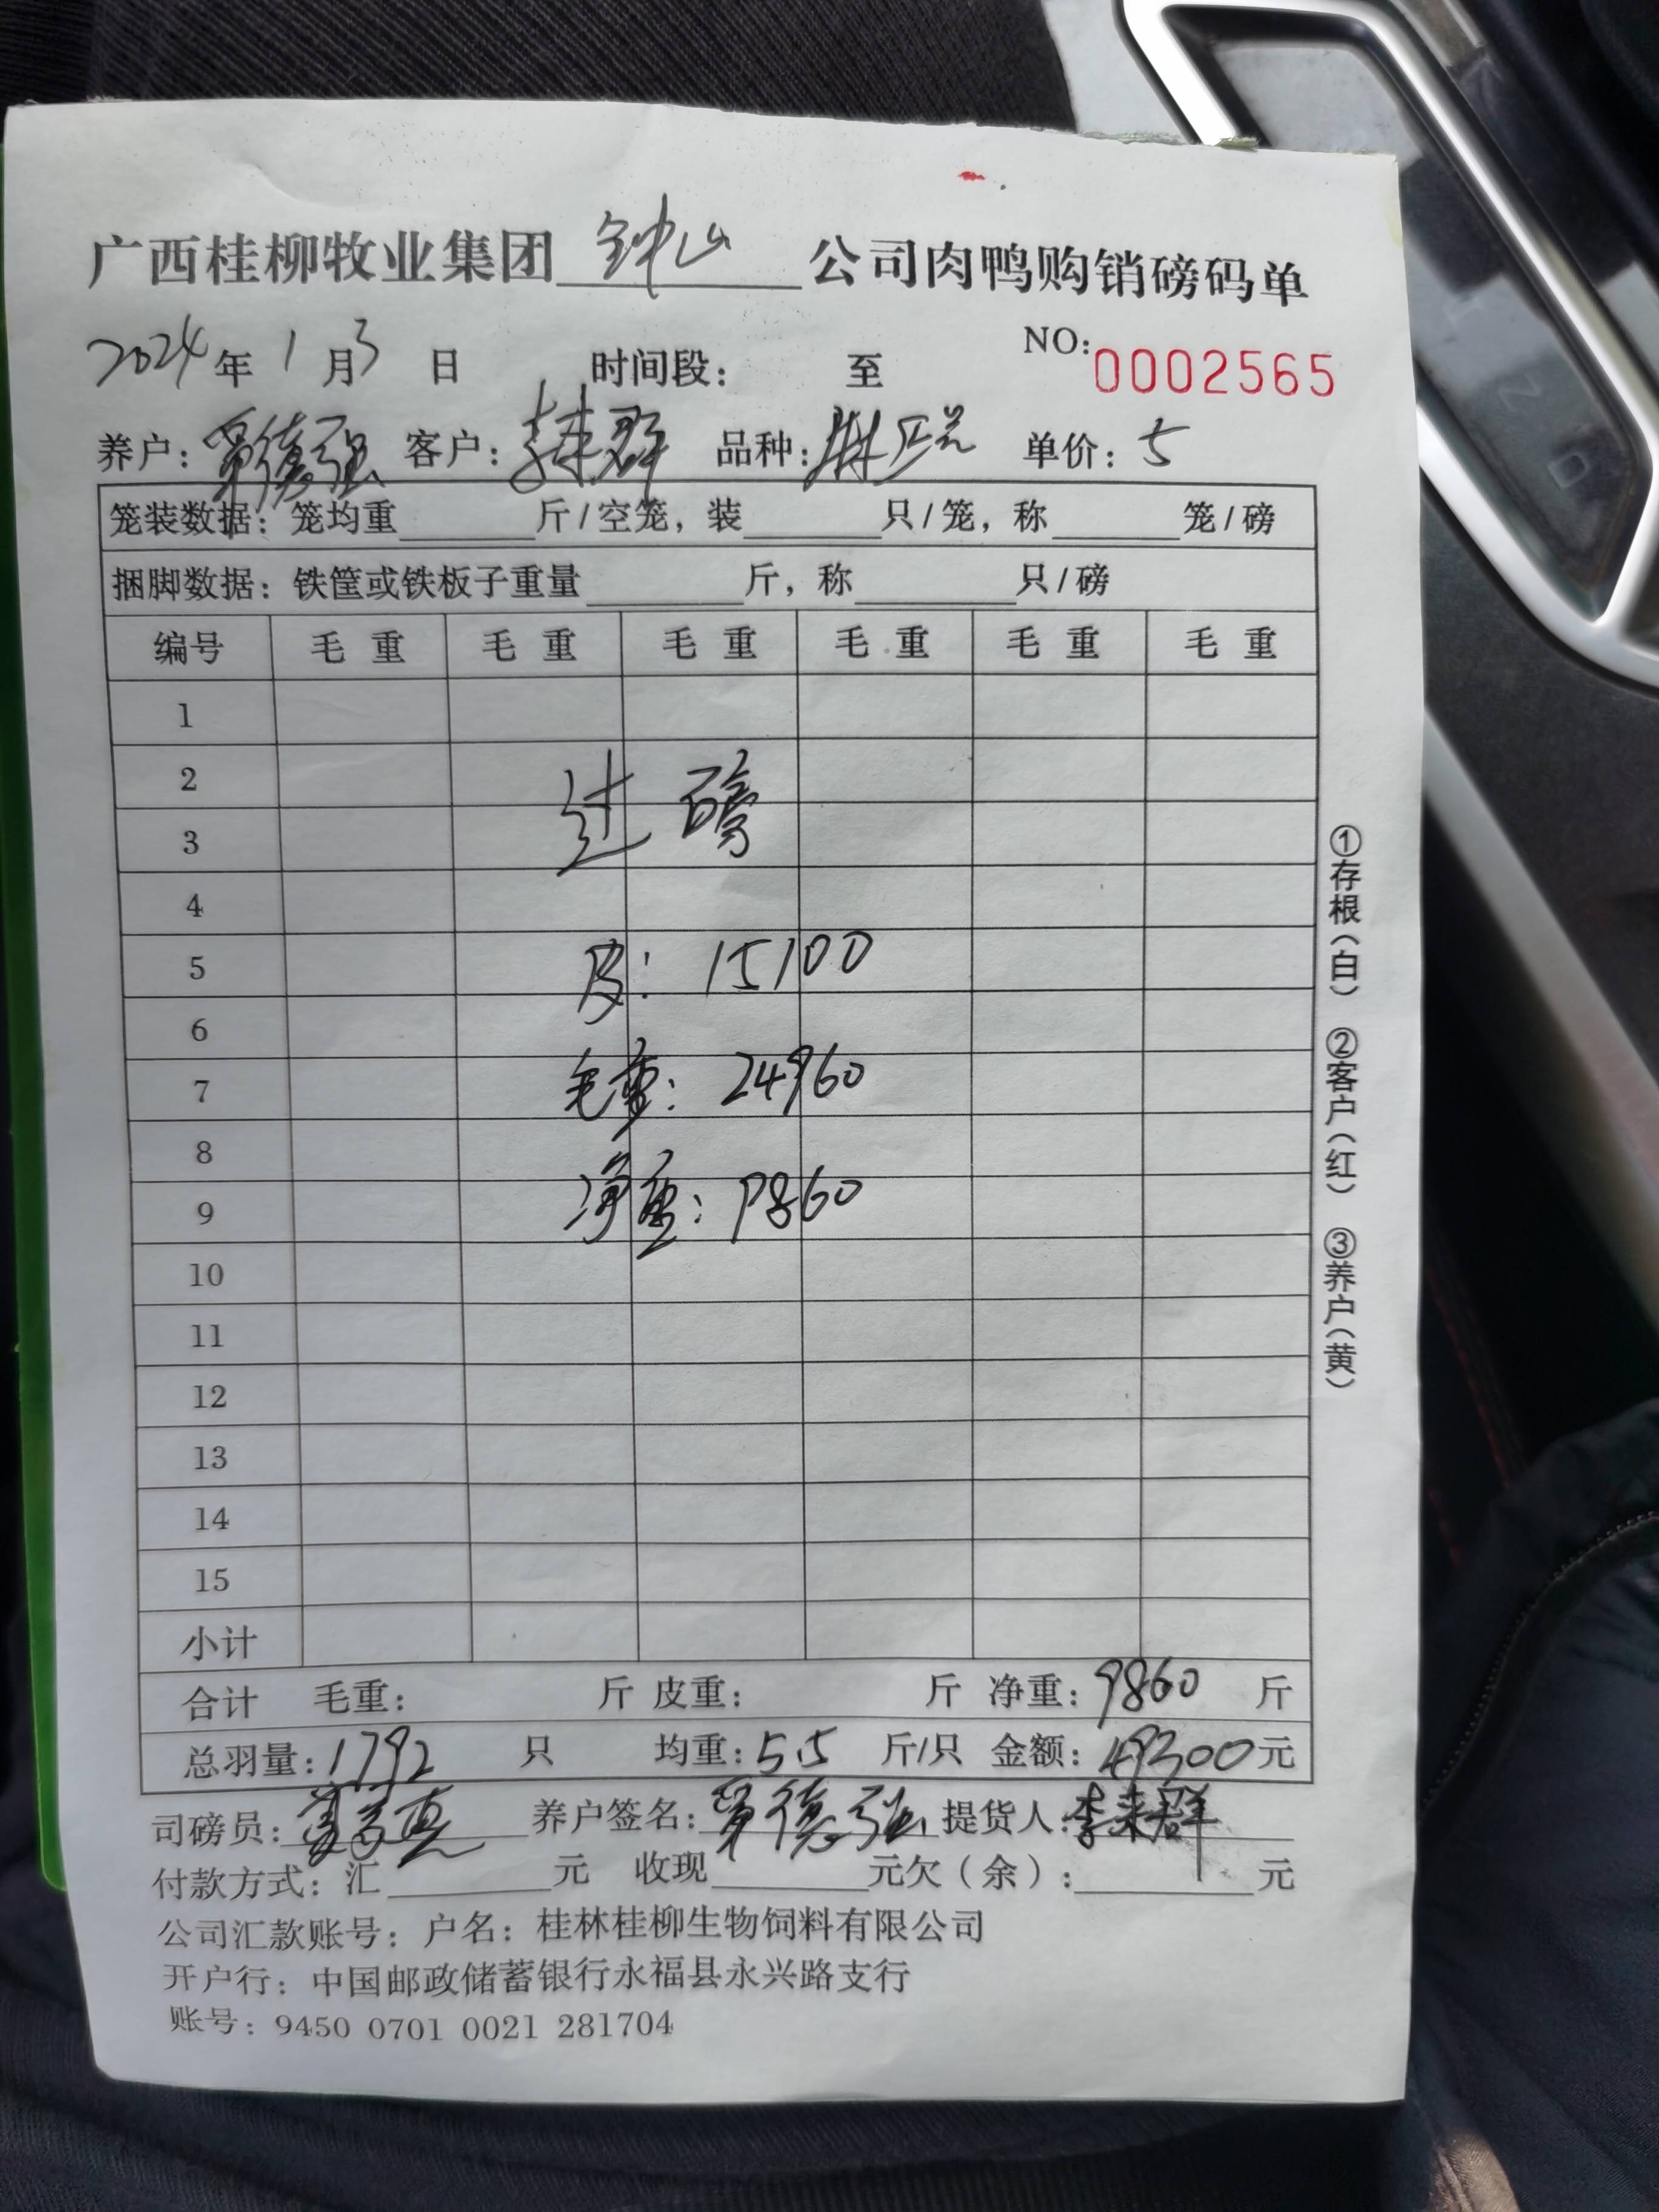 广西桂柳牧业集团 钟山 公司肉鸭购销磅码单
2024年1月3日 时间段： 至 NO:0002565
养户： 德强 客户：李来群 品种： 单价：5
笼装数据：笼均重 斤/空笼，装 只/笼，称 笼/磅
捆脚数据：铁筐或铁板子重量 斤，称 只/磅
编号 毛重 毛重 毛重 毛重 毛重 毛重
1
2
过磅
3
4
5
皮：15100
6
7
毛重：24960
8
9
净重：9860
10
11
12
13
14
15
小计
合计 毛重： 斤 皮重： 斤 净重：9860 斤
总羽量：1792 只 均重：5.5 斤/只 金额：49300元
司磅员： 养户签名： 德强 提货人：李来群
付款方式：汇 元 收现 元欠（余）： 元
公司汇款账号：户名：桂林桂柳生物饲料有限公司
开户行：中国邮政储蓄银行永福县永兴路支行
账号：9450 0701 0021 281704
①存根（白） ②客户（红） ③养户（黄）